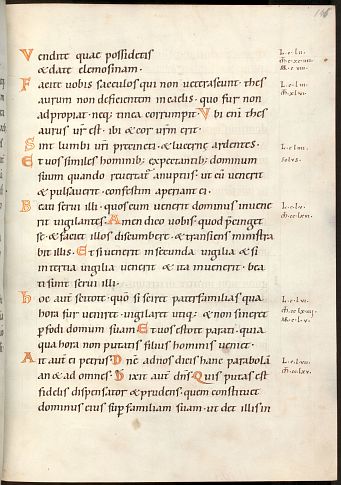 146
Vendite quae possidetis
& date elemosinam.
Facite uobis saeculos qui non ueterascunt. thes
aurum non deficientem in caelis. quo fur non
adpropiat. neq; tinea corrumpit. Vbi enī thes
aurus ur̄ est. ibi & cor ur̄m erit.
Sint lumbi ur̄i precincti. & lucernę ardentes.
Et uos similes hominib; expectantib; dominum
suum quando reuertat͛ a nuptiis. ut cū uenerit
& pulsauerit. confestim aperiant ei.
Beati serui illi. quos cum uenerit dominus inuene
rit uigilantes. Amen dico uobis. quod p̄cinget
se. & faciet illos discumbere. & transiens ministra
bit illis. Et si uenerit in secunda uigilia & si
in tertia uigilia uenerit & ita inuenerit. bea
ti sunt serui illi.
Hoc aut̄ scitote. quō si sciret paterfamilias qua
hora fur ueniret. uigilaret utiq; & non sineret
p̄fodi domum suam. Et uos estote parati. quia
qua hora non putatis filius hominis ueniet.
Ait aut̄ ei petrus. Dn̄e. ad nos dicis hanc parabolā
an & ad omnes. Dixit aut̄ dn̄s. Quis putas est
fidelis dispensator & prudens. quem constituet
dominus eius sup̄ familiam suam. ut det illis in